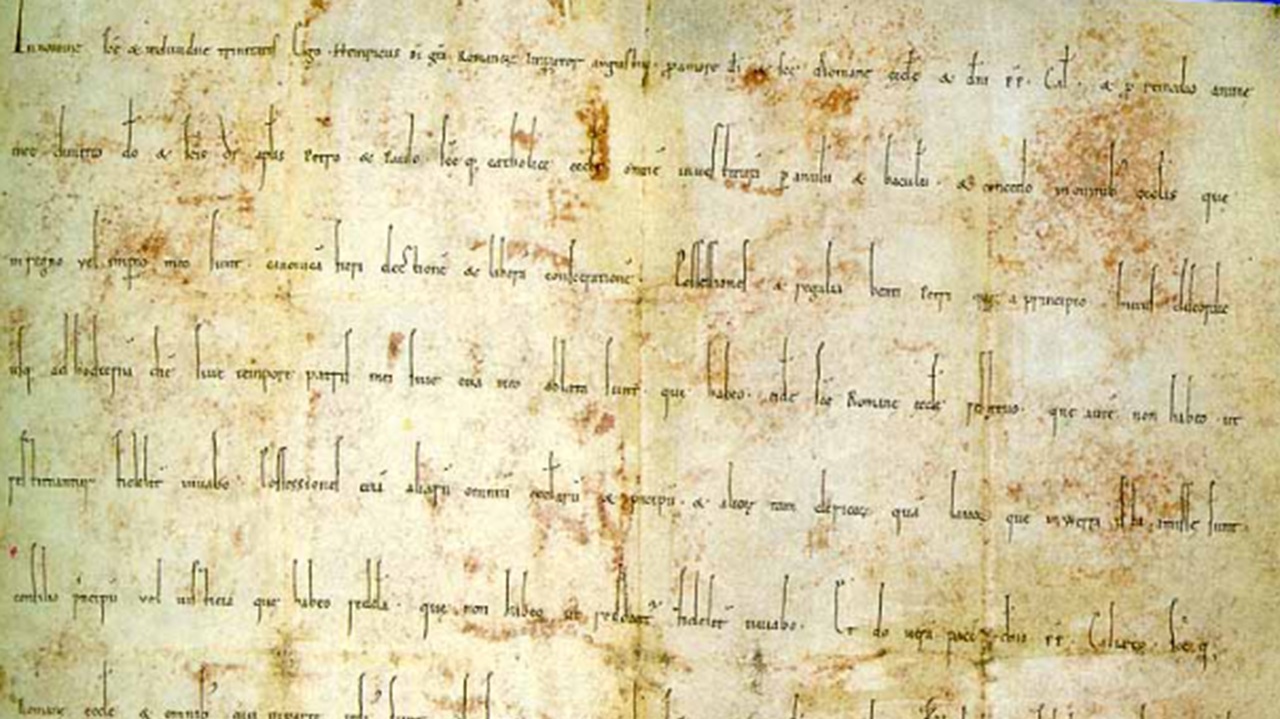 In nomine scē & individue trinitatis Ego Heinricus dī grā Romanorum Imperator augustus p amore dī & scę Romane ęcclę & dni pp. Cal. & p remedio anime
meę dimitto dō & scīs dī aplis Petro & Paulo scęq; catholicę ęcclę omnē investiturā p anulū & baculū & concedo in omnib; ęcclis que
in regno vel imperio meo sunt canonicā fieri electionē & liberā consecrationē. Possessiones & regalia beati Petri que a principio huius discordie
usq; ad hodiernā diē sive tempore patris mei sive etiā meo ablata sunt que habeo eidē scę Romane ęcclę restituo que autē non habeo ut
restituantur fidelit iuvabo Possessiones etiā aliarū omniū ęcclarū & principū & alioꝝ tam clericoꝝ quā laicoꝝ que in werra ista amisse sunt
consilio principū vel iusticia que habeo reddā que non habeo ut reddant fidelit iuvabo. Et do verā pacē dno pp. Calixto scęq;
Romane ęcclę & omnib; qui in parte